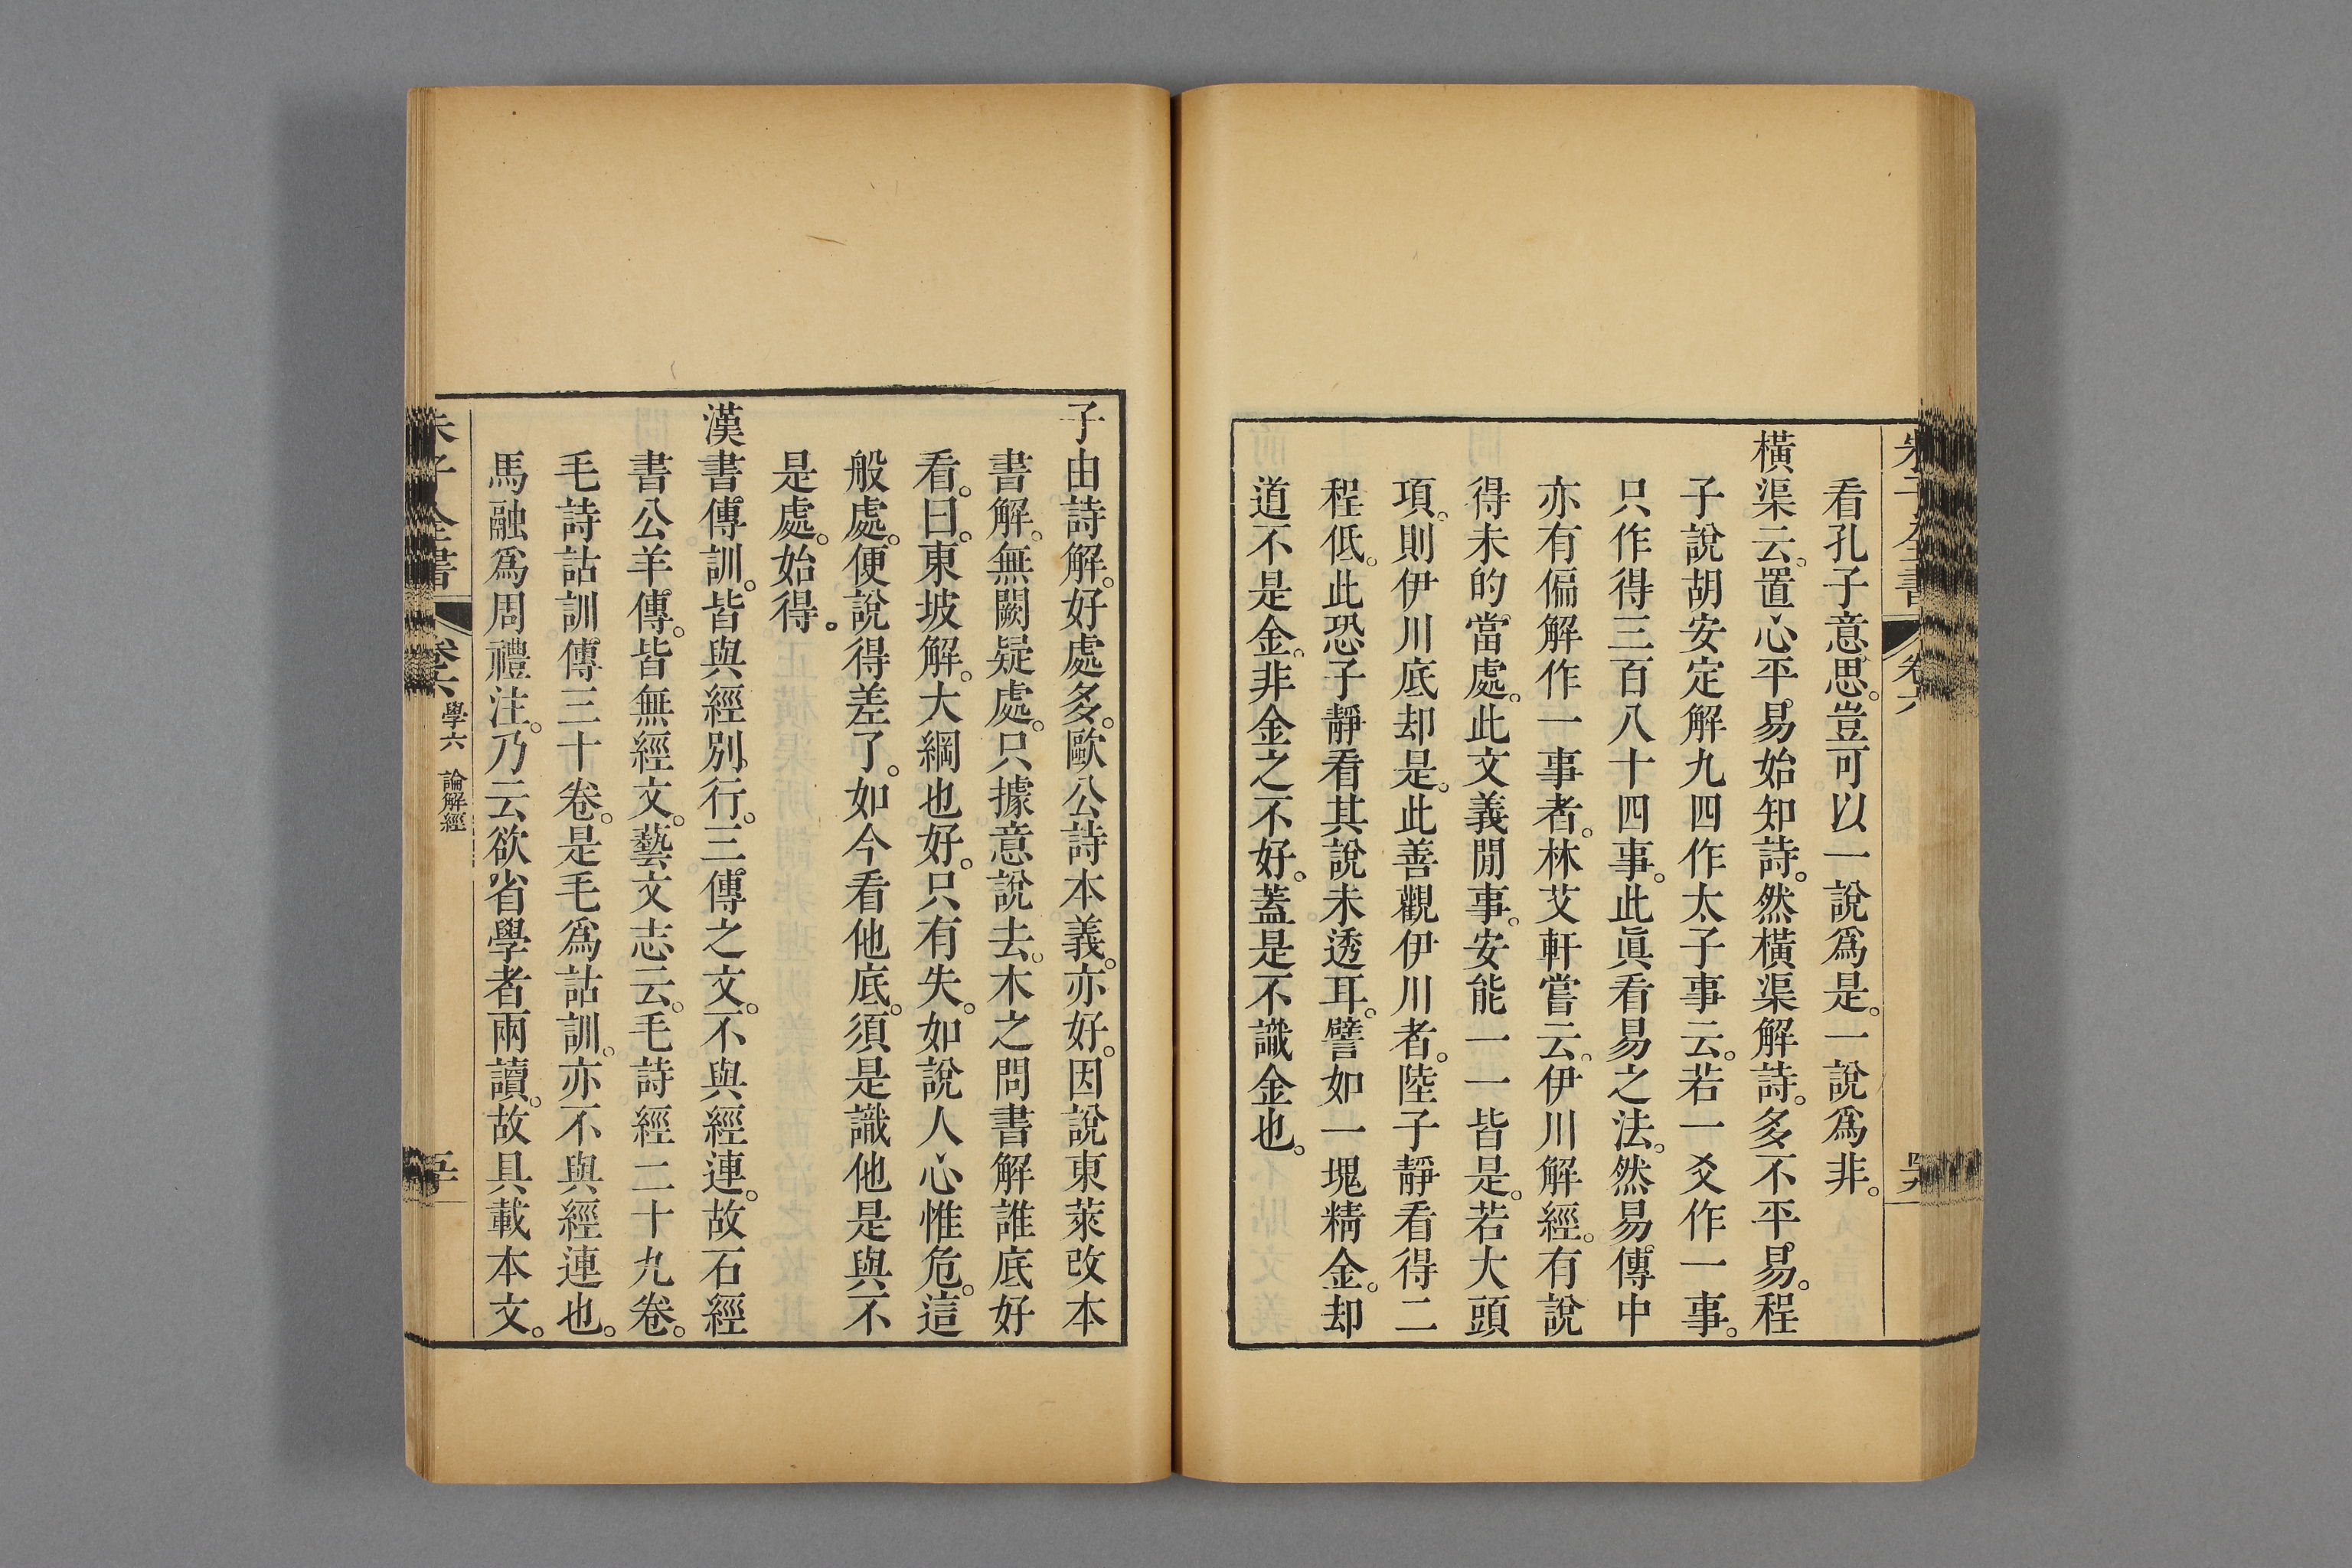 朱子全書 卷六
看孔子意思。豈可以一說爲是。一說爲非。
橫渠云。置心平易始知詩。然橫渠解詩。多不平易。程
子說胡安定解九四作太子事云。若一爻作一事。
只作得三百八十四事。此眞看易之法。然易傳中
亦有偏解作一事者。林艾軒嘗云。伊川解經。有說
得未的當處。此文義閒事。安能一一皆是。若大頭
項。則伊川底却是。此善觀伊川者。陸子靜看得二
程低。此恐子靜看其說未透耳。譬如一塊精金。却
道不是金。非金之不好。蓋是不識金也。
子由詩解。好處多。歐公詩本義。亦好。因說東萊改本
書解。無闕疑處。只據意說去。木之問書解誰底好
看。曰。東坡解。大綱也好。只有失。如說人心惟危。這
般處。便說得差了。如今看他底。須是識他是與不
是處。始得。
漢書傳訓。皆與經別行。三傳之文。不與經連。故石經
書公羊傳。皆無經文。藝文志云。毛詩經二十九卷。
毛詩詁訓傳三十卷。是毛爲詁訓。亦不與經連也。
馬融爲周禮注。乃云欲省學者兩讀。故具載本文。
朱子全書 卷六 學六 論解經